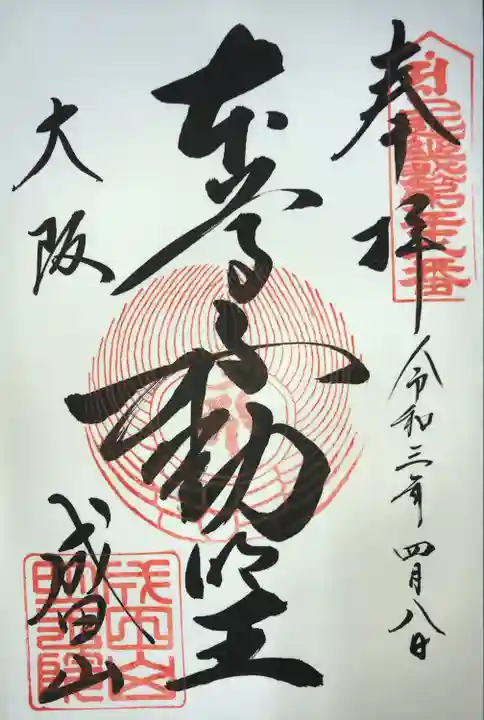 奉拝
令和三年 四月八日
本尊不動明王
大阪
成田山